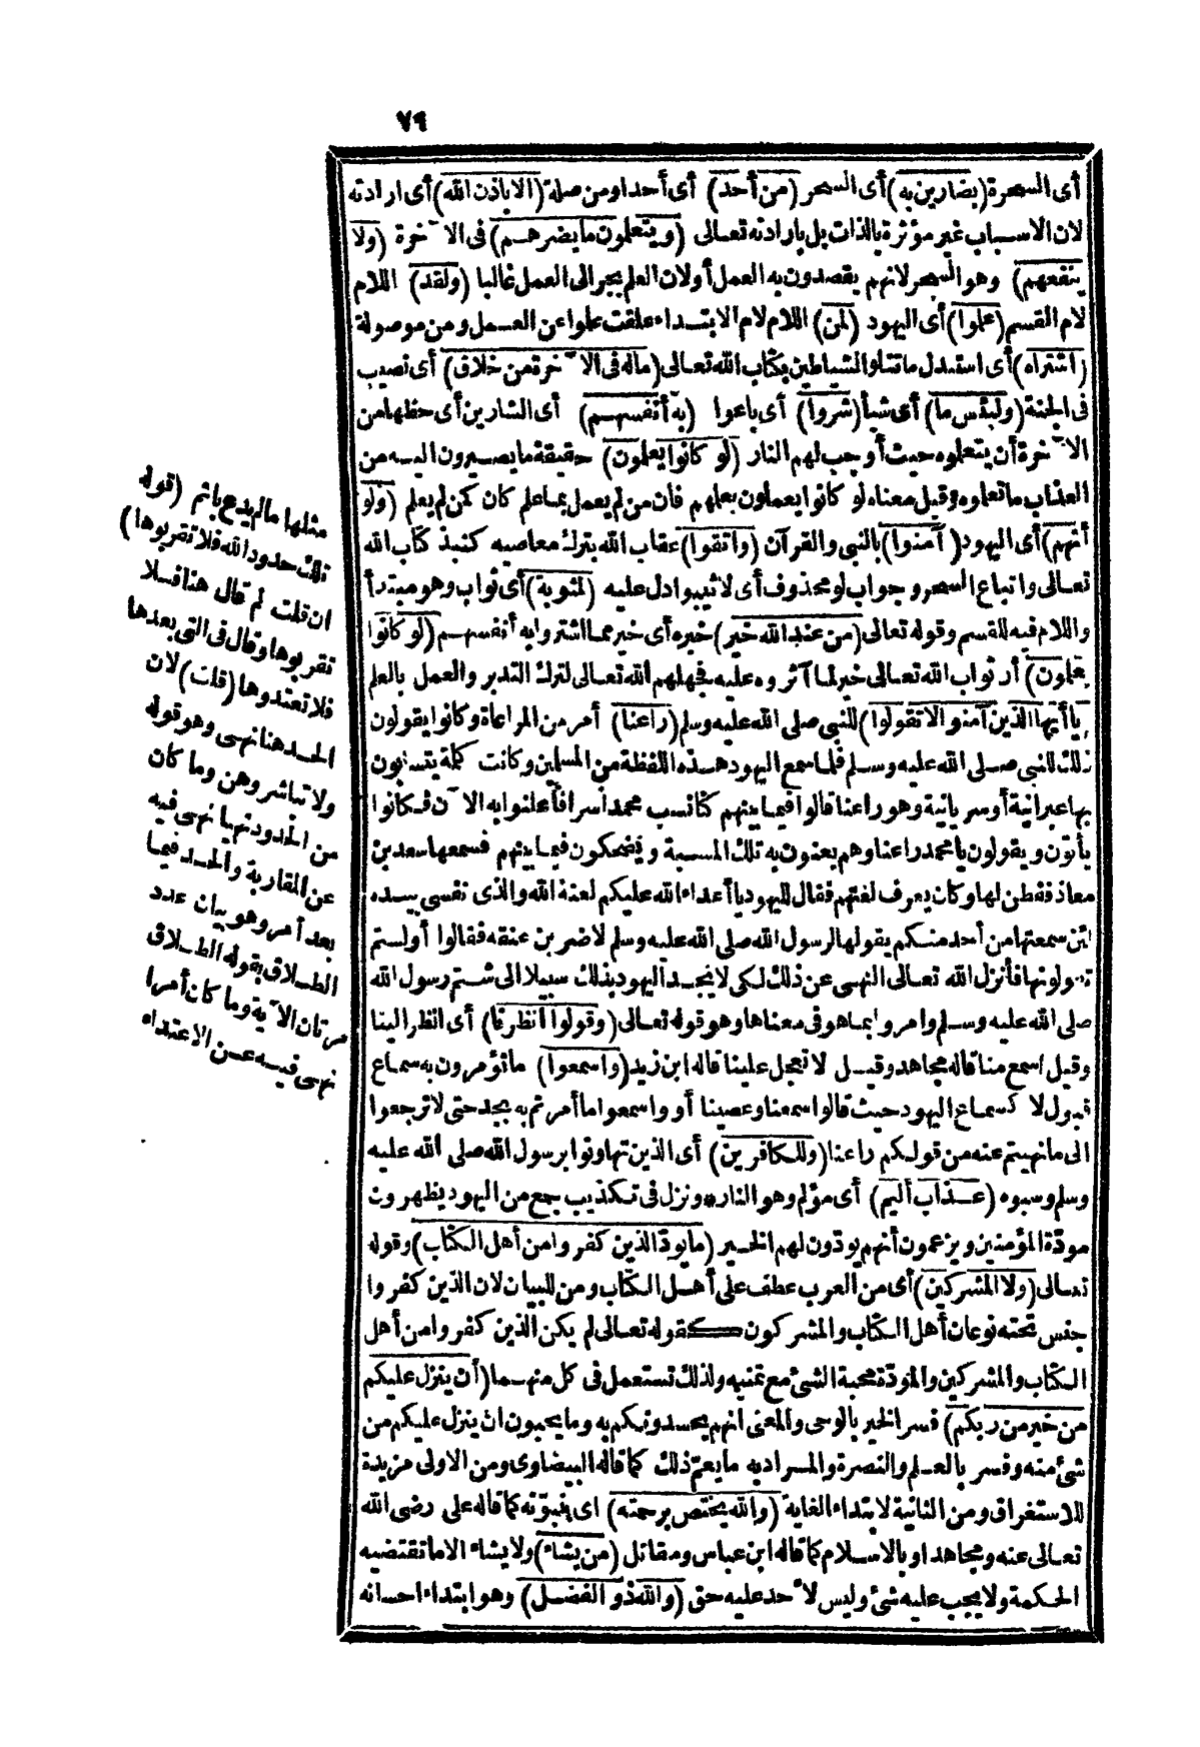 ٧٩
أى السحرة (بضارين به) أى السحر (من أحد) أى أحدا ومن صلة (الا باذن الله) أى ارادته
لان الاسباب غير مؤثرة بالذات بل بارادته تعالى (ويتعلمون ما يضرهم) فى الآخرة (ولا
ينفعهم) وهو السحر لانهم يقصدون به العمل أو لان العلم يجر الى العمل غالبا (ولقد) اللام
لام القسم (علموا) أى اليهود (لمن) اللام لام الابتداء علقت علموا عن العمل ومن موصولة
(اشتراه) أى استبدل ما تتلوا الشياطين بكتاب الله تعالى (ماله فى الآخرة من خلاق) أى نصيب
فى الجنة (ولبئس ما) أى شيأ (شروا) أى باعوا (به أنفسهم) أى الشارين أى حظها من
الآخرة أن يتعلموه حيث أوجب لهم النار (لو كانوا يعلمون) حقيقة ما يصيرون اليه من
العذاب ما تعلموه وقيل معناه لو كانوا يعملون بعلمهم فان من لم يعمل بما علم كان كمن لم يعلم (ولو
أنهم) أى اليهود (آمنوا) بالنبى والقرآن (واتقوا) عقاب الله بترك معاصيه كنبذ كتاب الله
تعالى واتباع السحر وجواب لو محذوف أى لاثيبوا دل عليه (لمثوبة) أى ثواب وهو مبتدأ
واللام فيه للقسم وقوله تعالى (من عند الله خير) خبره أى خير مما اشتروا به أنفسهم (لو كانوا
يعلمون) أن ثواب الله تعالى خير لما آثروه عليه فجهلهم الله تعالى لترك التدبر والعمل بالعلم
(يا أيها الذين آمنوا لا تقولوا) للنبى صلى الله عليه وسلم (راعنا) أمر من المراعاة وكانوا يقولون
ذلك للنبى صلى الله عليه وسلم فلما سمع اليهود هذه اللفظة من المسلمين وكانت كلمة يتسابون
بها عبرانية أو سريانية وهو راعنا قالوا فيما بينهم كنا نسب محمدا سرا فأعلنوا به الآن فكانوا
يأتون ويقولون يا محمد راعنا وهم يعنون به تلك المسبة ويضحكون فيما بينهم فسمعها سعد بن
معاذ ففطن لها وكان يعرف لغتهم فقال لليهود يا أعداء الله عليكم لعنة الله والذى نفسى بيده
لئن سمعتها من أحد منكم يقولها لرسول الله صلى الله عليه وسلم لاضربن عنقه فقالوا أولستم
تقولونها فأنزل الله تعالى النهى عن ذلك لكى لا يجد اليهود بذلك سبيلا الى شتم رسول الله
صلى الله عليه وسلم وامروا بما هو فى معناها وهو قوله تعالى (وقولوا انظرنا) أى انظر الينا
وقيل اسمع منا قاله مجاهد وقيل لا تعجل علينا قاله ابن زيد (واسمعوا) ما تؤمرون به سماع
قبول لا كسماع اليهود حيث قالوا سمعنا وعصينا أو واسمعوا ما أمرتم به بجد حتى لا ترجعوا
الى ما نهيتم عنه من قولكم راعنا (وللكافرين) أى الذين تهاونوا برسول الله صلى الله عليه
وسلم وسبوه (عذاب أليم) أى مؤلم وهو النار * ونزل فى تكذيب جمع من اليهود يظهرون
مودّة المؤمنين ويزعمون أنهم يودون لهم الخير (ما يودّ الذين كفروا من أهل الكتاب) وقوله
تعالى (ولا المشركين) أى من العرب عطف على أهل الكتاب ومن للبيان لان الذين كفروا
جنس تحته نوعان أهل الكتاب والمشركون كقوله تعالى لم يكن الذين كفروا من أهل
الكتاب والمشركين والمودّة محبة الشئ مع تمنيه ولذلك تستعمل فى كل منهما (أن ينزل عليكم
من خير من ربكم) فسر الخير بالوحى والمعنى انهم يحسدونكم به وما يحبون ان ينزل عليكم من
شئ منه وفسر بالعلم والنصرة والمراد به ما يعمّ ذلك كما قاله البيضاوى ومن الاولى مزيدة
للاستغراق ومن الثانية لابتداء الغاية (والله يختص برحمته) اى بنبوّته كما قاله على رضى الله
تعالى عنه ومجاهد او بالاسلام كما قاله ابن عباس ومقاتل (من يشاء) ولا يشاء الا ما تقتضيه
الحكمة ولا يجب عليه شئ وليس لأحد عليه حق (والله ذو الفضل) وهو ابتداء احسانه
مثلها ما لم يدع باثم (قوله
تلك حدود الله فلا تقربوها)
ان قلت لم قال هنا فلا
تقربوها وقال فى التى بعدها
فلا تعتدوها (قلت) لان
الحد هنا نهى وهو قوله
ولا تباشروهن وما كان
من الحدود نهيا نهى فيه
عن المقاربة والحد فيما
بعد أمر وهو بيان عدد
الطلاق بقوله الطلاق
مرتان الآية وما كان أمرا
نهى فيه عن الاعتداء